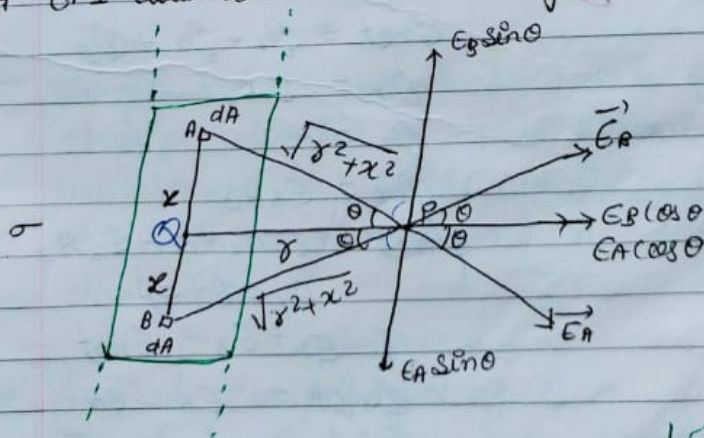 E_B sinθ
dA
A
√r²+x²
E_B
x
θ
P
θ
σ
Q
r
θ
θ
E_B cosθ
E_A cosθ
x
√r²+x²
B
dA
E_A
E_A sinθ